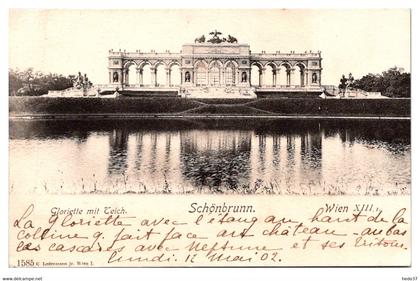 Gloriette mit Teich.
Schönbrunn.
Wien XIII.
La Gloriette avec l'étang au haut de la
colline qui fait face au château - au bas
les cascades avec Neptune et ses Tritons.
Lundi 12 Mai 02.
1585 C. Ledermann jr. Wien I.